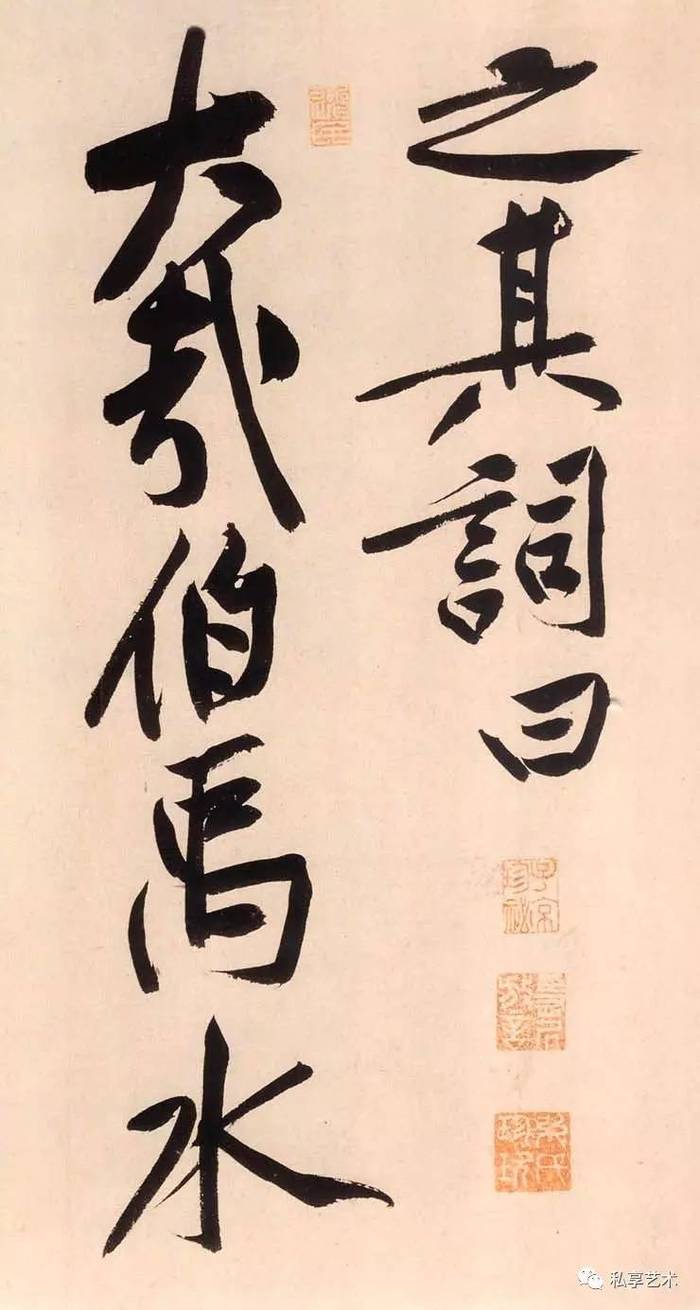 之其詞曰
大哉伯禹水
私享艺术